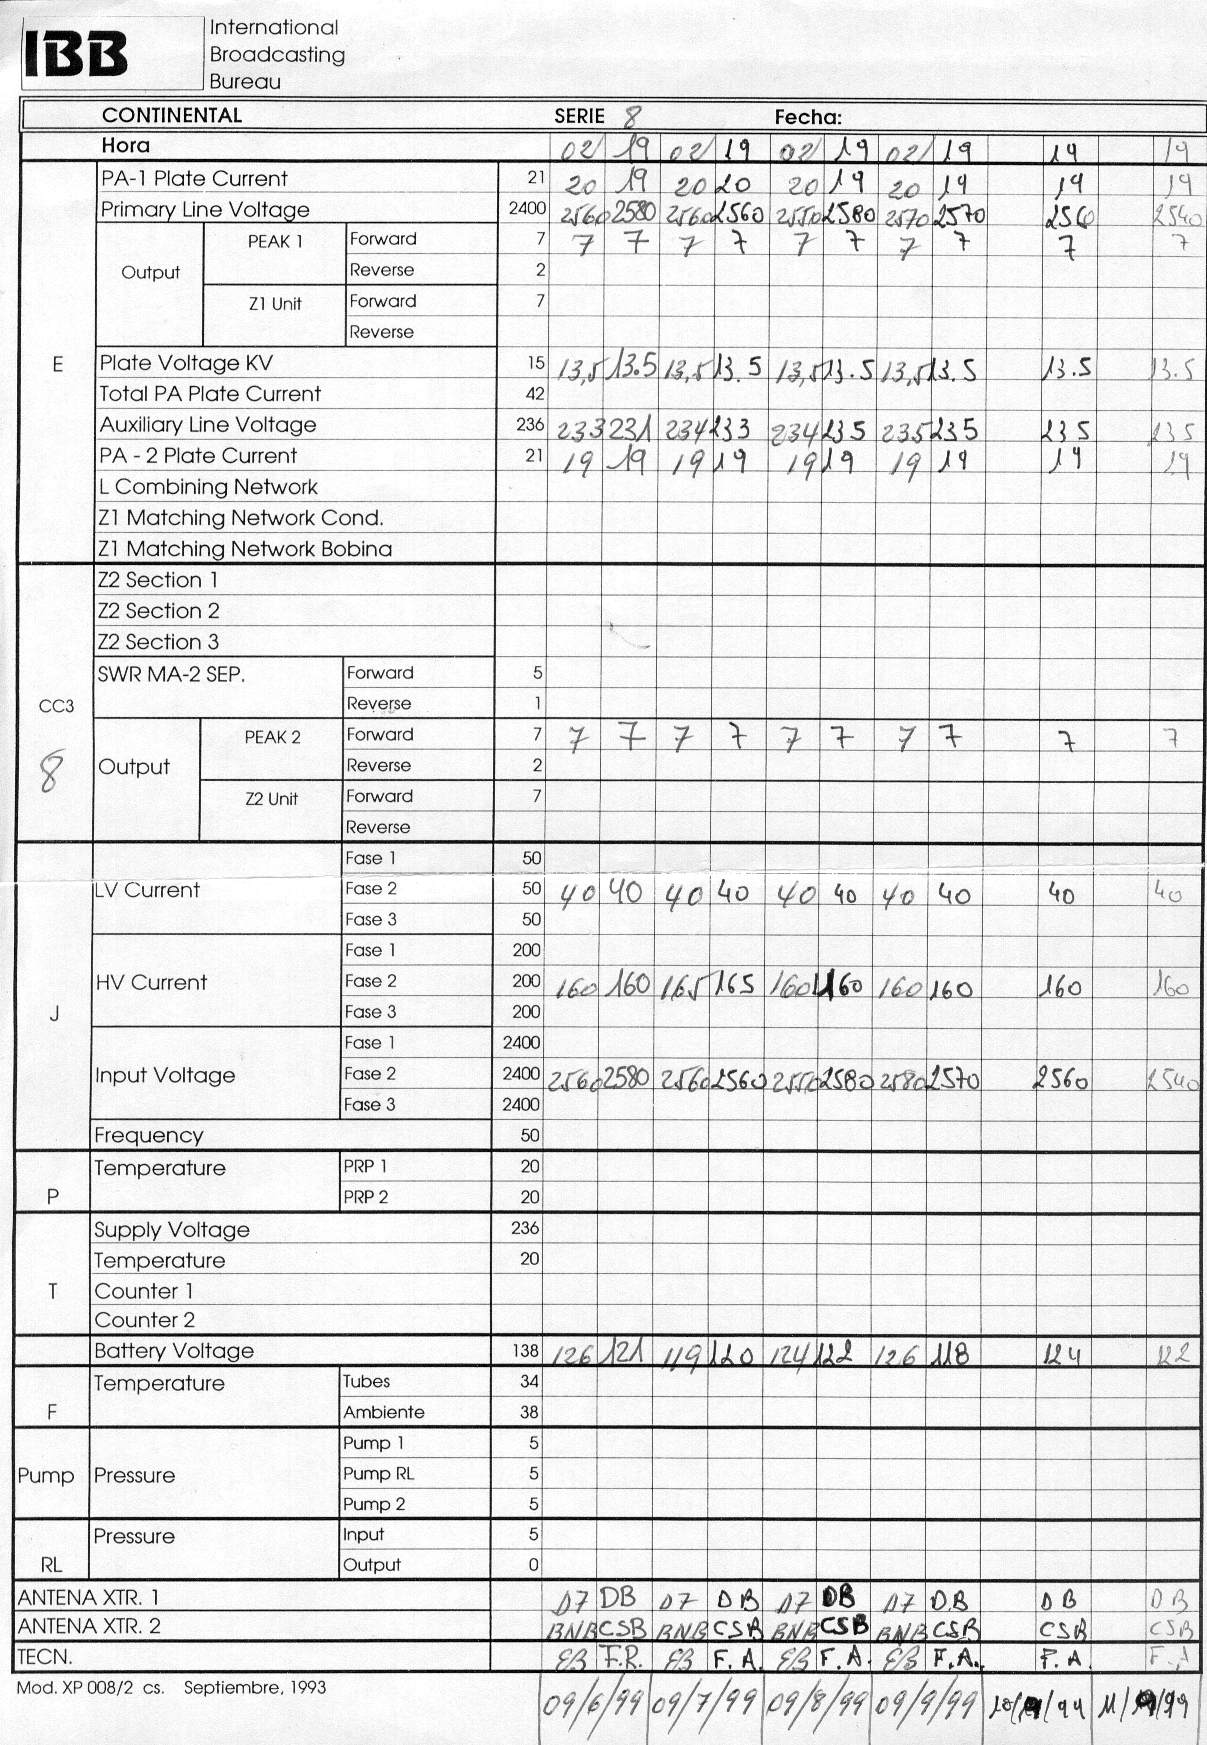 IBB International
Broadcasting
Bureau
CONTINENTAL SERIE 8 Fecha:
Hora 02/ 19 02/ 19 02/ 19 02/ 19 19 19
PA-1 Plate Current 21 20 19 20 20 20 19 20 19 19 19
Primary Line Voltage 2400 2560 2580 2560 2560 2550 2580 2570 2570 2560 2540
PEAK 1 Forward 7 7 7 7 7 7 7 7 7 7 7
Output Reverse 2
Z1 Unit Forward 7
Reverse
E Plate Voltage KV 15 13,5 13.5 13,5 13.5 13,5 13.5 13,5 13.5 13.5 13.5
Total PA Plate Current 42
Auxiliary Line Voltage 236 233 231 234 233 234 235 235 235 235 235
PA - 2 Plate Current 21 19 19 19 19 19 19 19 19 19 19
L Combining Network
Z1 Matching Network Cond.
Z1 Matching Network Bobina
Z2 Section 1
Z2 Section 2
Z2 Section 3
SWR MA-2 SEP. Forward 5
CC3 Reverse 1
PEAK 2 Forward 7 7 7 7 7 7 7 7 7 7 7
8 Output Reverse 2
Z2 Unit Forward 7
Reverse
Fase 1 50
LV Current Fase 2 50 40 40 40 40 40 40 40 40 40 40
Fase 3 50
Fase 1 200
HV Current Fase 2 200 160 160 165 165 160 160 160 160 160 160
J Fase 3 200
Fase 1 2400
Input Voltage Fase 2 2400 2560 2580 2560 2560 2550 2580 2580 2570 2560 2540
Fase 3 2400
Frequency 50
Temperature PRP 1 20
P PRP 2 20
Supply Voltage 236
Temperature 20
T Counter 1
Counter 2
Battery Voltage 138 126 121 119 120 124 122 126 118 124 122
Temperature Tubes 34
F Ambiente 38
Pump 1 5
Pump Pressure Pump RL 5
Pump 2 5
Pressure Input 5
RL Output 0
ANTENA XTR. 1 D7 DB D7 DB D7 DB D7 DB DB DB
ANTENA XTR. 2 BNB CSB BNB CSB BNB CSB BNB CSB CSB CSB
TECN. EB F.R. EB F.A. EB F.A. EB F.A. F.A. F.A
Mod. XP 008/2 cs. Septiembre, 1993
09/6/99 09/7/99 09/8/99 09/9/99